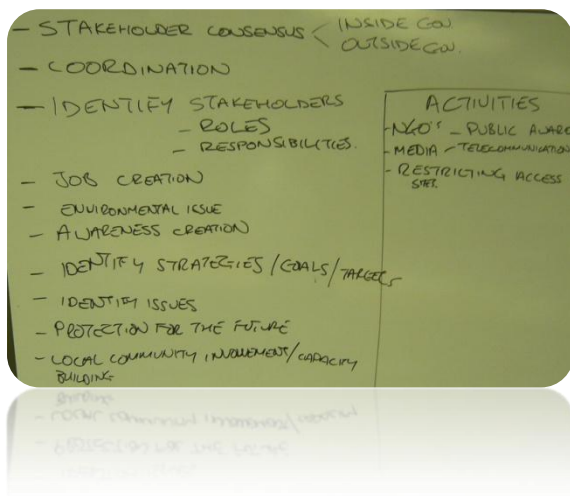 - STAKEHOLDER CONSENSUS < INSIDE GOV.
OUTSIDE GOV.
- COORDINATION
- IDENTIFY STAKEHOLDERS
- ROLES
- RESPONSIBILITIES.
- JOB CREATION
- ENVIRONMENTAL ISSUE
- AWARENESS CREATION
- IDENTIFY STRATEGIES/GOALS/TARGETS
- IDENTIFY ISSUES
- PROTECTION FOR THE FUTURE
- LOCAL COMMUNITY INVOLVEMENT/CAPACITY
BUILDING
ACTIVITIES
- NGO'S - PUBLIC AWARE
- MEDIA - TELECOMMUNICATION
- RESTRICTING ACCESS